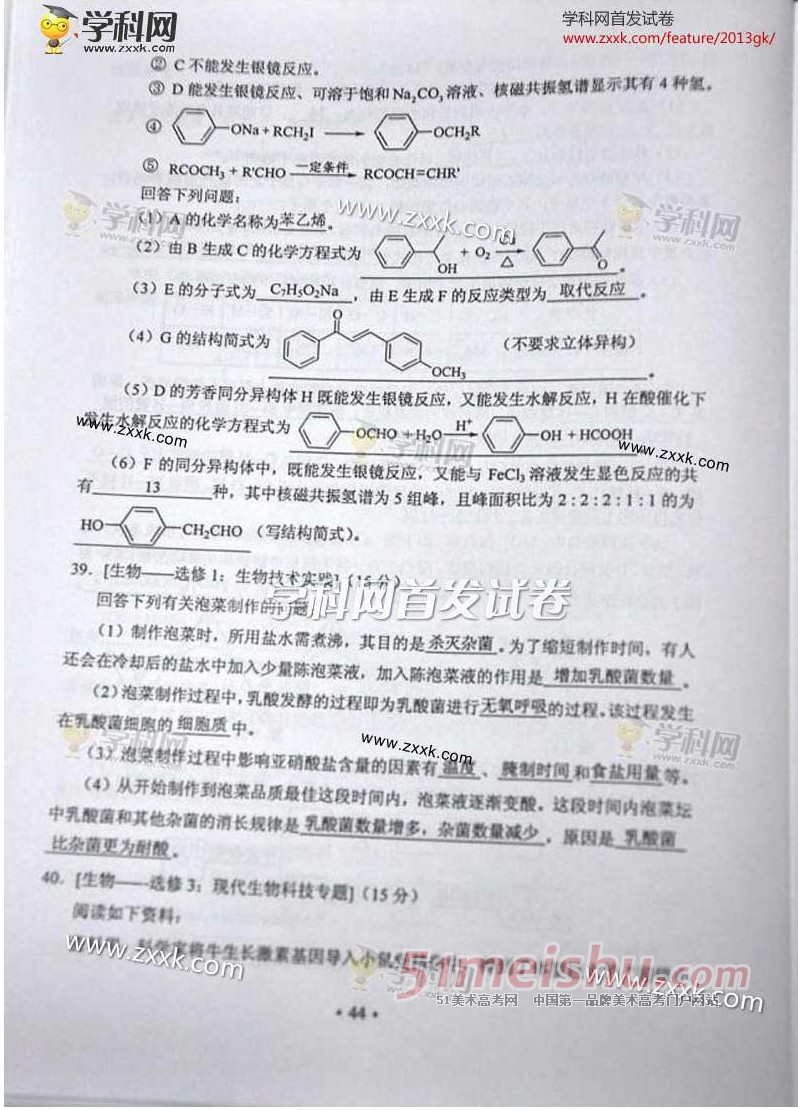 学科网
www.zxxk.com
学科网首发试卷
www.zxxk.com/feature/2013gk/
② C不能发生银镜反应。
③ D能发生银镜反应、可溶于饱和Na₂CO₃溶液、核磁共振氢谱显示其有4种氢。
④ —ONa + RCH₂I → —OCH₂R
⑤ RCOCH₃ + R'CHO 一定条件 RCOCH=CHR'
回答下列问题：
(1) A的化学名称为苯乙烯。
(2) 由B生成C的化学方程式为 OH + O₂ △ O 。
(3) E的分子式为 C₇H₅O₂Na ，由E生成F的反应类型为 取代反应 。
(4) G的结构简式为 O OCH₃ (不要求立体异构)
(5) D的芳香同分异构体H既能发生银镜反应，又能发生水解反应，H在酸催化下
发生水解反应的化学方程式为 —OCHO + H₂O H⁺ —OH + HCOOH
(6) F的同分异构体中，既能发生银镜反应，又能与FeCl₃溶液发生显色反应的共
有 13 种，其中核磁共振氢谱为5组峰，且峰面积比为2:2:2:1:1的为
HO— —CH₂CHO (写结构简式)。
39. [生物——选修1：生物技术实践] (15分)
学科网首发试卷
回答下列有关泡菜制作的问题
(1) 制作泡菜时，所用盐水需煮沸，其目的是 杀灭杂菌 。为了缩短制作时间，有人
还会在冷却后的盐水中加入少量陈泡菜液，加入陈泡菜液的作用是 增加乳酸菌数量 。
(2) 泡菜制作过程中，乳酸发酵的过程即为乳酸菌进行无氧呼吸的过程。该过程发生
在乳酸菌细胞的 细胞质 中。
(3) 泡菜制作过程中影响亚硝酸盐含量的因素有 温度 、 腌制时间 和食盐用量等。
(4) 从开始制作到泡菜品质最佳这段时间内，泡菜液逐渐变酸。这段时间内泡菜坛
中乳酸菌和其他杂菌的消长规律是 乳酸菌数量增多，杂菌数量减少 ，原因是 乳酸菌
比杂菌更为耐酸 。
40. [生物——选修3：现代生物科技专题] (15分)
阅读如下资料：
将牛生长激素基因导入小鼠
www.zxxk.com
51meishu.com
51美术高考网 中国第一品牌美术高考门户网站
• 44 •